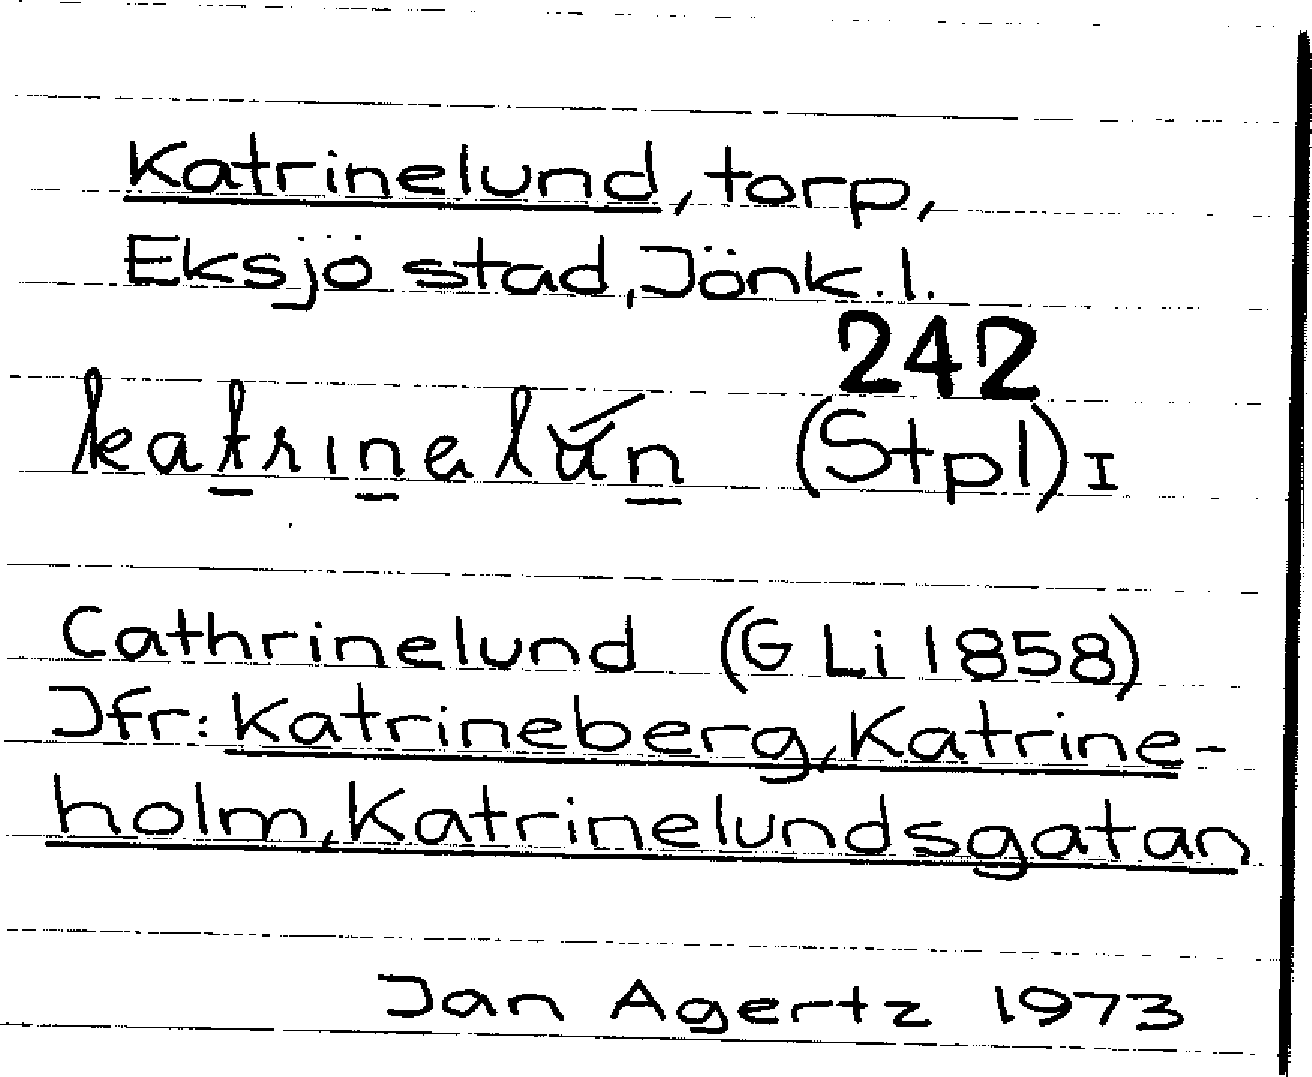 Katrinelund, torp,
Eksjö stad, Jönk. l.
242
katrinelún (Stpl) I
Cathrinelund (G Li 1858)
Jfr: Katrineberg, Katrine-
holm, Katrinelundsgatan
Jan Agertz 1973